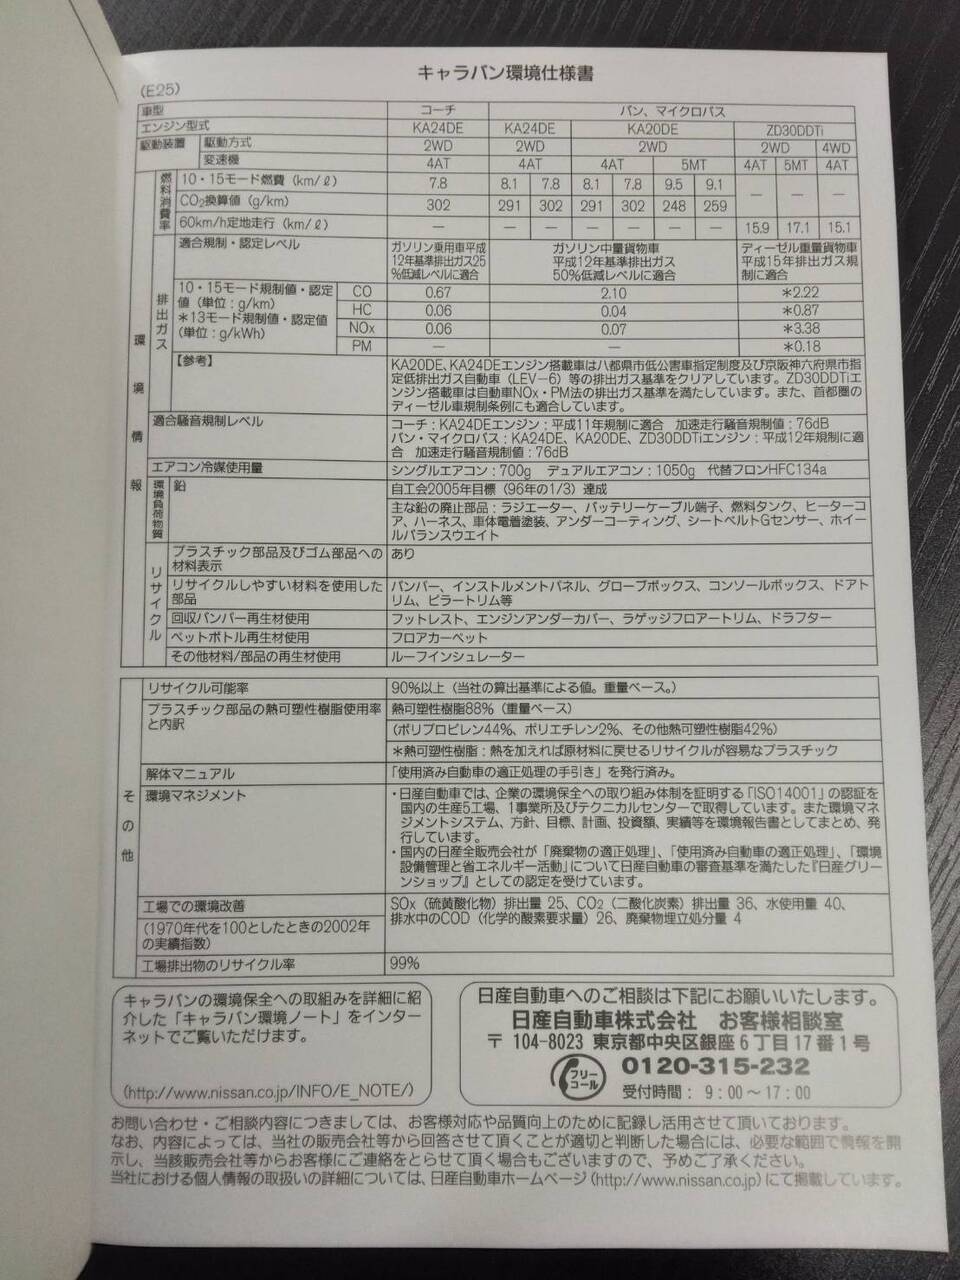 キャラバン環境仕様書
(E25)
車型 コーチ バン、マイクロバス
エンジン型式 KA24DE KA24DE KA20DE ZD30DDTi
駆動装置 駆動方式 2WD 2WD 2WD 2WD 4WD
変速機 4AT 4AT 4AT 5MT 4AT 5MT 4AT
環境情報
燃料消費率 10・15モード燃費(km/ℓ) 7.8 8.1 7.8 8.1 7.8 9.5 9.1 — — —
CO₂換算値(g/km) 302 291 302 291 302 248 259
60km/h定地走行(km/ℓ) — — — — — — — 15.9 17.1 15.1
排出ガス 適合規制・認定レベル ガソリン乗用車平成12年基準排出ガス25%低減レベルに適合 ガソリン中量貨物車平成12年基準排出ガス50%低減レベルに適合 ディーゼル重量貨物車平成15年排出ガス規制に適合
10・15モード規制値・認定値(単位:g/km)
＊13モード規制値・認定値(単位:g/kWh)
CO 0.67 2.10 ＊2.22
HC 0.06 0.04 ＊0.87
NOx 0.06 0.07 ＊3.38
PM — — ＊0.18
【参考】 KA20DE、KA24DEエンジン搭載車は八都県市低公害車指定制度及び京阪神六府県市指
定低排出ガス自動車(LEV−6)等の排出ガス基準をクリアしています。ZD30DDTiエ
ンジン搭載車は自動車NOx・PM法の排出ガス基準を満たしています。また、首都圏の
ディーゼル車規制条例にも適合しています。
適合騒音規制レベル コーチ:KA24DEエンジン:平成11年規制に適合 加速走行騒音規制値:76dB
バン・マイクロバス:KA24DE、KA20DE、ZD30DDTiエンジン:平成12年規制に適
合 加速走行騒音規制値:76dB
エアコン冷媒使用量 シングルエアコン:700g デュアルエアコン:1050g 代替フロンHFC134a
環境負荷物質 鉛 自工会2005年目標(96年の1/3)達成
主な鉛の廃止部品:ラジエーター、バッテリーケーブル端子、燃料タンク、ヒーターコ
ア、ハーネス、車体電着塗装、アンダーコーティング、シートベルトGセンサー、ホイー
ルバランスウエイト
リサイクル プラスチック部品及びゴム部品への材料表示 あり
リサイクルしやすい材料を使用した部品 バンパー、インストルメントパネル、グローブボックス、コンソールボックス、ドアト
リム、ピラートリム等
回収バンパー再生材使用 フットレスト、エンジンアンダーカバー、ラゲッジフロアートリム、ドラフター
ペットボトル再生材使用 フロアカーペット
その他材料/部品の再生材使用 ルーフインシュレーター
その他
リサイクル可能率 90%以上(当社の算出基準による値。重量ベース。)
プラスチック部品の熱可塑性樹脂使用率と内訳 熱可塑性樹脂88%(重量ベース)
(ポリプロピレン44%、ポリエチレン2%、その他熱可塑性樹脂42%)
＊熱可塑性樹脂:熱を加えれば原材料に戻せるリサイクルが容易なプラスチック
解体マニュアル 「使用済み自動車の適正処理の手引き」を発行済み。
環境マネジメント ・日産自動車では、企業の環境保全への取り組み体制を証明する「ISO14001」の認証を
国内の生産5工場、1事業所及びテクニカルセンターで取得しています。また環境マネ
ジメントシステム、方針、目標、計画、投資額、実績等を環境報告書としてまとめ、発
行しています。
・国内の日産全販売会社が「廃棄物の適正処理」、「使用済み自動車の適正処理」、「環境
設備管理と省エネルギー活動」について日産自動車の審査基準を満たした『日産グリー
ンショップ』としての認定を受けています。
工場での環境改善 SOx(硫黄酸化物)排出量 25、CO₂(二酸化炭素)排出量 36、水使用量 40、
(1970年代を100としたときの2002年の実績指数) 排水中のCOD(化学的酸素要求量)26、廃棄物埋立処分量 4
工場排出物のリサイクル率 99%
キャラバンの環境保全への取組みを詳細に紹
介した「キャラバン環境ノート」をインター
ネットでご覧いただけます。
(http://www.nissan.co.jp/INFO/E_NOTE/)
日産自動車へのご相談は下記にお願いいたします。
日産自動車株式会社 お客様相談室
〒104-8023 東京都中央区銀座6丁目17番1号
フリーコール 0120-315-232
受付時間:9:00～17:00
お問い合わせ・ご相談内容につきましては、お客様対応や品質向上のために記録し活用させて頂いております。
なお、内容によっては、当社の販売会社等から回答させて頂くことが適切と判断した場合には、必要な範囲で情報を開
示し、当該販売会社等からお客様にご連絡をとらせて頂く場合もございますので、予めご了承ください。
当社における個人情報の取扱いの詳細については、日産自動車ホームページ(http://www.nissan.co.jp)にて掲載しています。